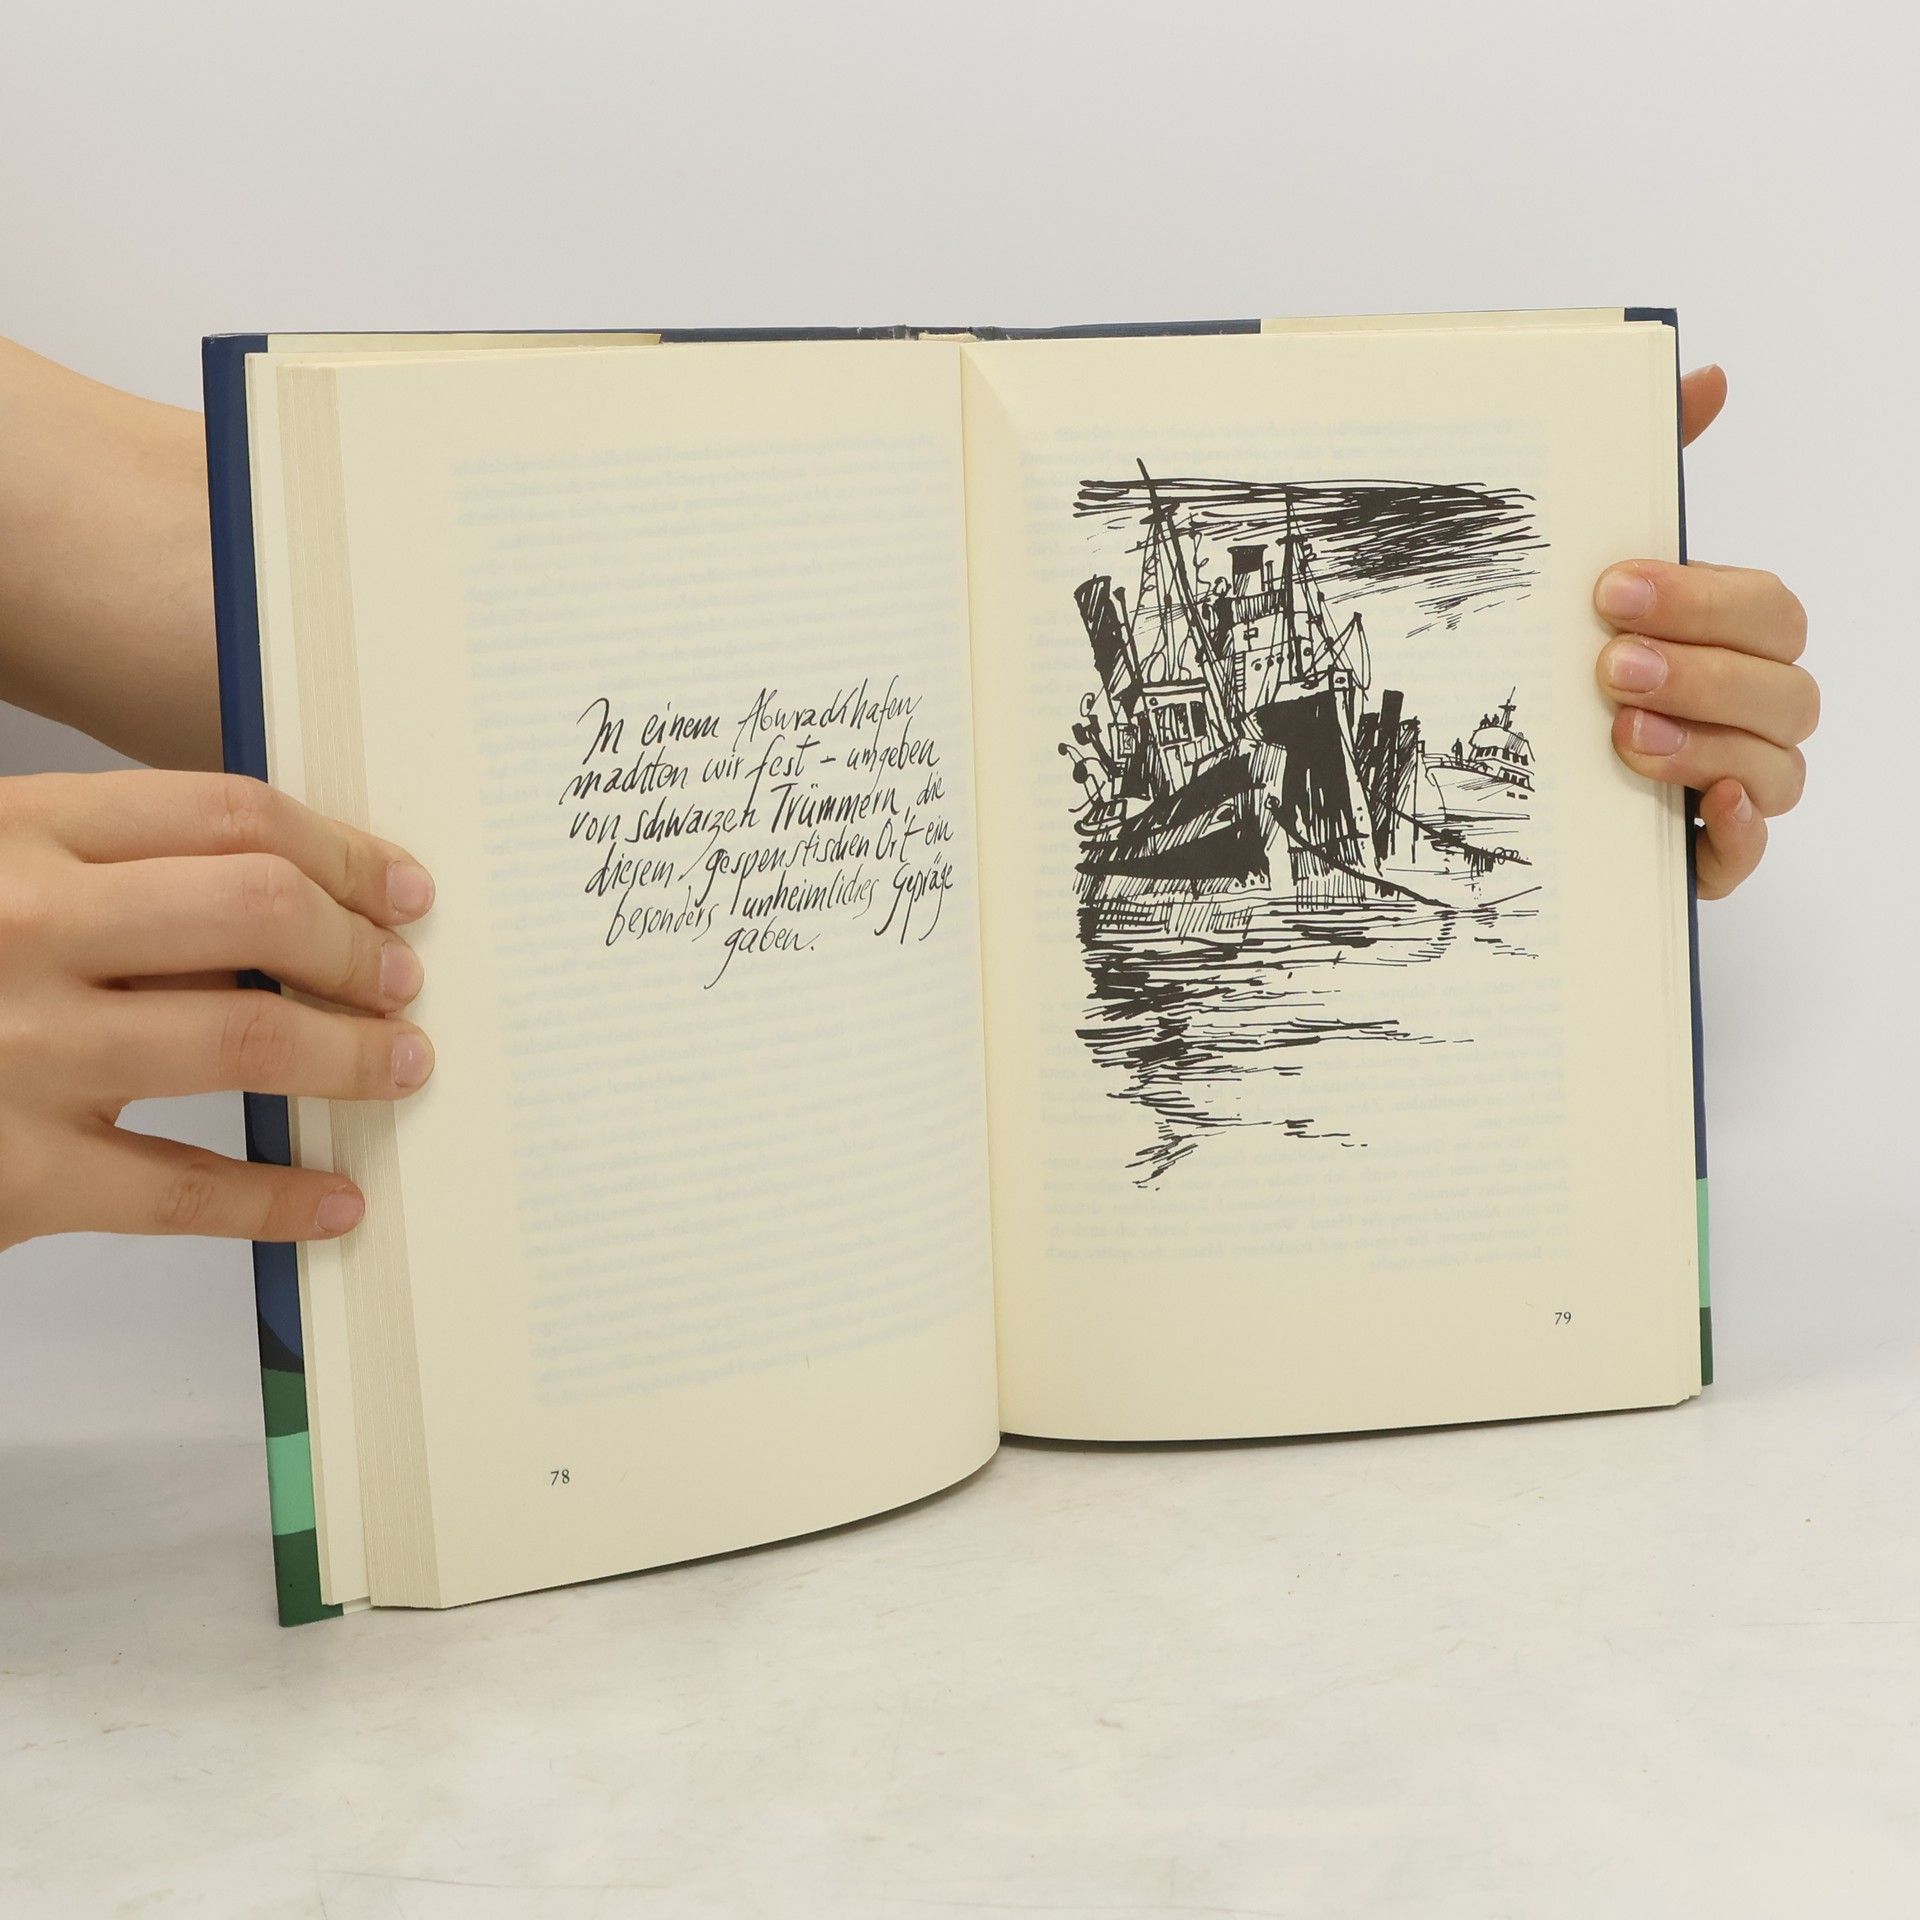 In einem Abwrackhafen
machten wir fest – umgeben
von schwarzen Trümmern, die
diesem gespenstischen Ort ein
besonders unheimliches Gepräge
gaben.
78
79